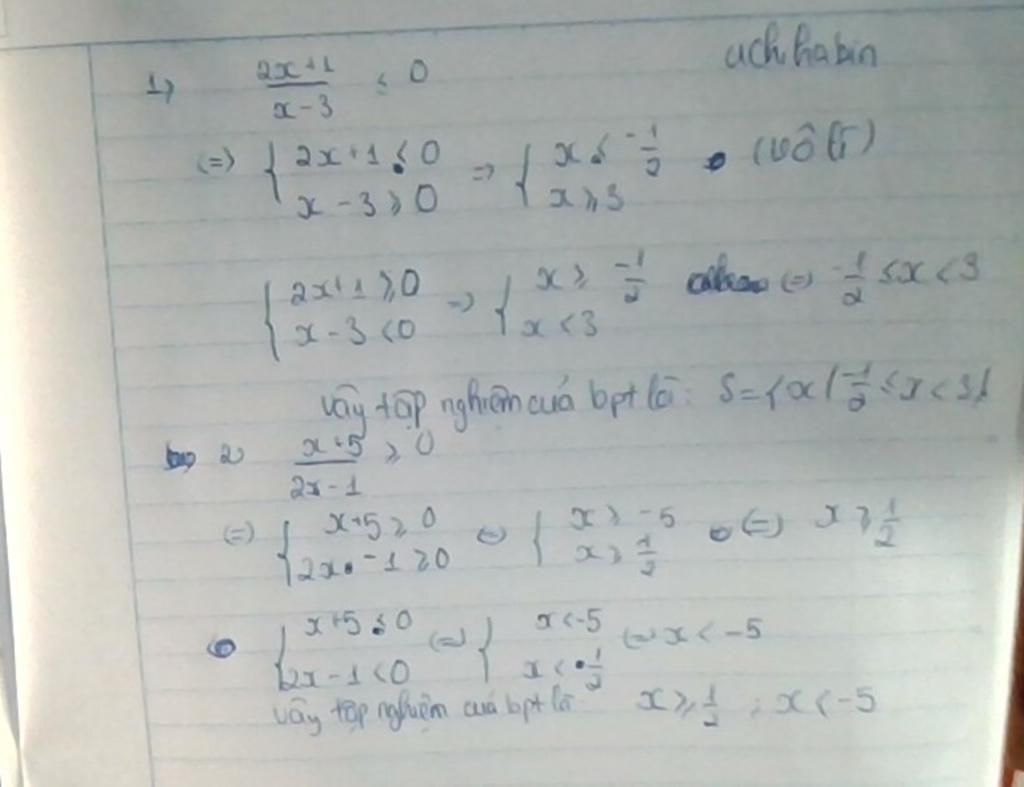 uchihabin
1) \frac{2x+1}{x-3} ≤ 0
(=) { 2x+1 ≤ 0 ; x-3 ≥ 0 => { x ≤ -\frac{1}{2} ; x ≥ 3 (vô lí)
{ 2x+1 ≥ 0 ; x-3 < 0 => { x ≥ \frac{-1}{2} ; x < 3 (=) -\frac{1}{2} ≤ x < 3
vậy tập nghiệm của bpt là: S={x | \frac{-1}{2} ≤ x < 3}
2) \frac{x+5}{2x-1} ≥ 0
(=) { x+5 ≥ 0 ; 2x-1 ≥ 0 (=) { x ≥ -5 ; x ≥ \frac{1}{2} (=) x ≥ \frac{1}{2}
{ x+5 ≤ 0 ; 2x-1 < 0 (=) { x < -5 ; x < \frac{1}{2} (=) x < -5
vậy tập nghiệm của bpt là x ≥ \frac{1}{2} ; x < -5